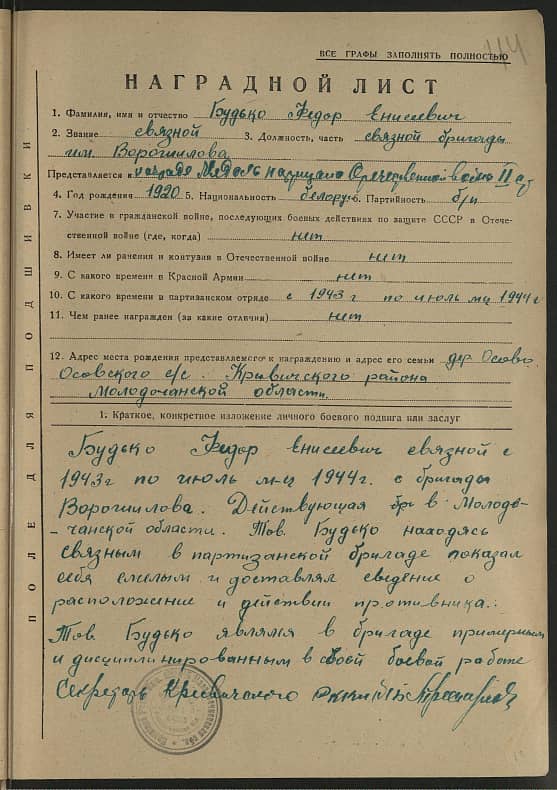 ВСЕ ГРАФЫ ЗАПОЛНЯТЬ ПОЛНОСТЬЮ
НАГРАДНОЙ ЛИСТ
1. Фамилия, имя и отчество Будько Федор Енисеевич
2. Звание связной 3. Должность, часть связной бригады
им. Ворошилова
Представляется к награде Медаль партизана Отечественной войны II ст
4. Год рождения 1920 5. Национальность белорус 6. Партийность б/п
7. Участие в гражданской войне, последующих боевых действиях по защите СССР в Отече-
ственной войне (где, когда) нет
8. Имеет ли ранения и контузии в Отечественной войне нет
9. С какого времени в Красной Армии нет
10. С какого времени в партизанском отряде с 1943 г по июль м-ц 1944 г
11. Чем ранее награжден (за какие отличия) нет
12. Адрес места рождения представляемого к награждению и адрес его семьи дер Осово
Осовского с/с. Кривичского района
Молодочанской области.
1. Краткое, конкретное изложение личного боевого подвига или заслуг
Будько Федор Енисеевич связной с
1943 г по июль м-ц 1944 г. с бригады
Ворошилова. Действующая бр в Молодо-
-чанской области. Тов. Будько находясь
связным в партизанской бригаде показал
себя смелым и доставлял сведение о
расположение и действии противника.
Тов. Будько являлся в бригаде примерным
и дисциплинированным в своей боевой работе
Секретарь Кривичского
ПОЛЕ ДЛЯ ПОДШИВКИ